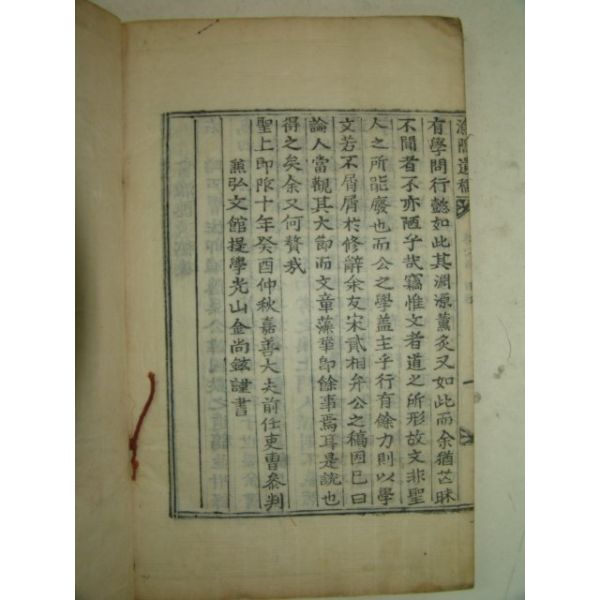 隱遺稿
有學問行懿如此其淵源薰炙又如此而余猶茫昧
不聞者不亦陋乎哉竊惟文者道之所形故文非聖
人之所能廢也而公之學盖主乎行有餘力則以學
文若不屑屑於修辭余友宋貳相弁公之稿固已曰
論人當觀其大節而文章藻華卽餘事焉耳是說也
得之矣余又何贅哉
聖上卽阼十年癸酉仲秋嘉善大夫前任吏曹參判
兼弘文館提學光山金尙鉉謹書